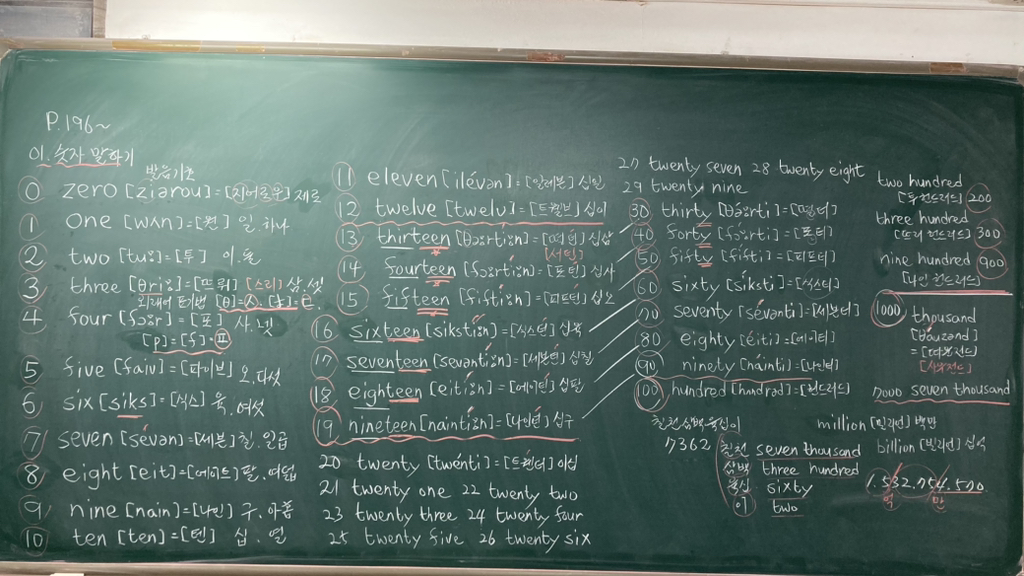 P.196~
01. 숫자 말하기
발음기초
0 zero [ziərou]=[지어로우] 제로
1 one [wʌn]=[원] 일, 하나
2 two [tu:]=[투] 이, 둘
3 three [θri:]=[뜨뤼] [스리] 삼, 셋
4 four [fɔ:r]=[포] 사, 넷
[p]=[f]=ㅍ
5 five [faiv]=[파이브] 오, 다섯
6 six [siks]=[식스] 육, 여섯
7 seven [sévən]=[세븐] 칠, 일곱
8 eight [eit]=[에이트] 팔, 여덟
9 nine [nain]=[나인] 구, 아홉
10 ten [ten]=[텐] 십, 열
11 eleven [ilévən]=[일레븐] 십일
12 twelve [twelv]=[트웰브] 십이
13 thirteen [θə:rti:n]= 십삼
[서틴]
14 fourteen [fɔ:rti:n]=[포틴] 십사
15 fifteen [fifti:n]=[피프틴] 십오
16 sixteen [siksti:n]=[식스틴] 십육
17 seventeen [sevənti:n]=[세븐틴] 십칠
18 eighteen [eiti:n]=[에이틴] 십팔
19 nineteen [nainti:n]=[나인틴] 십구
20 twenty [twénti]=[트웬티] 이십
21 twenty one 22 twenty two
23 twenty three 24 twenty four
25 twenty five 26 twenty six
27 twenty seven 28 twenty eight
29 twenty nine
30 thirty [θə́:rti]=
40 forty [fɔ́:rti]=[포티]
50 fifty [fifti]=[피프티]
60 sixty [siksti]=[식스티]
70 seventy [sévənti]=[세븐티]
80 eighty [éiti]=[에이티]
90 ninety [náinti]=[나인티]
100 hundred [hʌndrəd]=[헌드러드]
칠천삼백육십이
7362
칠천 seven thousand
삼백 three hundred
육십 sixty
이 two
two hundred
[투 헌드러드] 200
three hundred
[뜨리 헌드러드] 300
nine hundred 900
[나인 헌드러드]
1000 thousand
[θáuzənd]
=[따우전드]
[싸우전드]
7000 seven thousand
million [밀리언] 백만
billion [빌리언] 십억
1.532.754.570
억 만